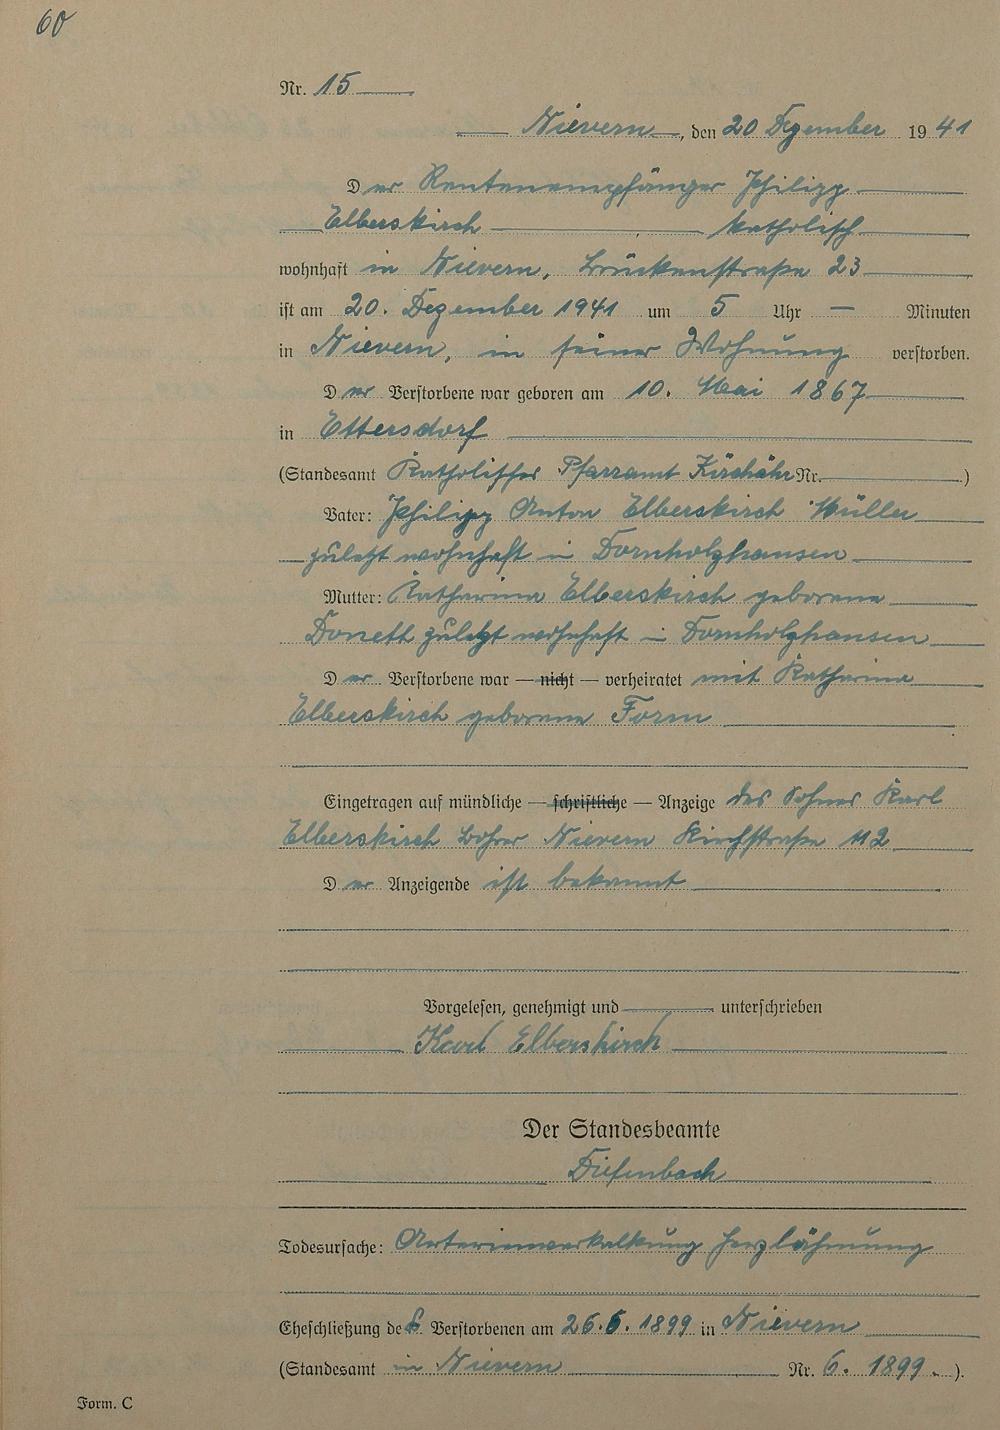 60
Nr. 15
Nievern, den 20 Dezember 1941
Der Rentenempfänger Philipp
Elberskirch katholisch
wohnhaft in Nievern, Brückenstraße 23
ist am 20. Dezember 1941 um 5 Uhr — Minuten
in Nievern, in seiner Wohnung verstorben.
Der Verstorbene war geboren am 10. Mai 1867
in Ettersdorf
(Standesamt Katholisches Pfarramt Kirchähr Nr. )
Vater: Philipp Anton Elberskirch Müller
zuletzt wohnhaft in Dornholzhausen
Mutter: Katharina Elberskirch geborene
Donett zuletzt wohnhaft in Dornholzhausen
Der Verstorbene war — nicht — verheiratet mit Katharina
Elberskirch geborene Form
Eingetragen auf mündliche — schriftliche — Anzeige des Sohnes Karl
Elberskirch Bohrer Nievern Kirchstraße 112
Der Anzeigende ist bekannt
Vorgelesen, genehmigt und unterschrieben
Karl Elberskirch
Der Standesbeamte
Diefenbach
Todesursache: Arterienverkalkung Herzlähmung
Eheschließung des Verstorbenen am 26.6.1899 in Nievern
(Standesamt in Nievern Nr. 6. 1899.).
Form. C